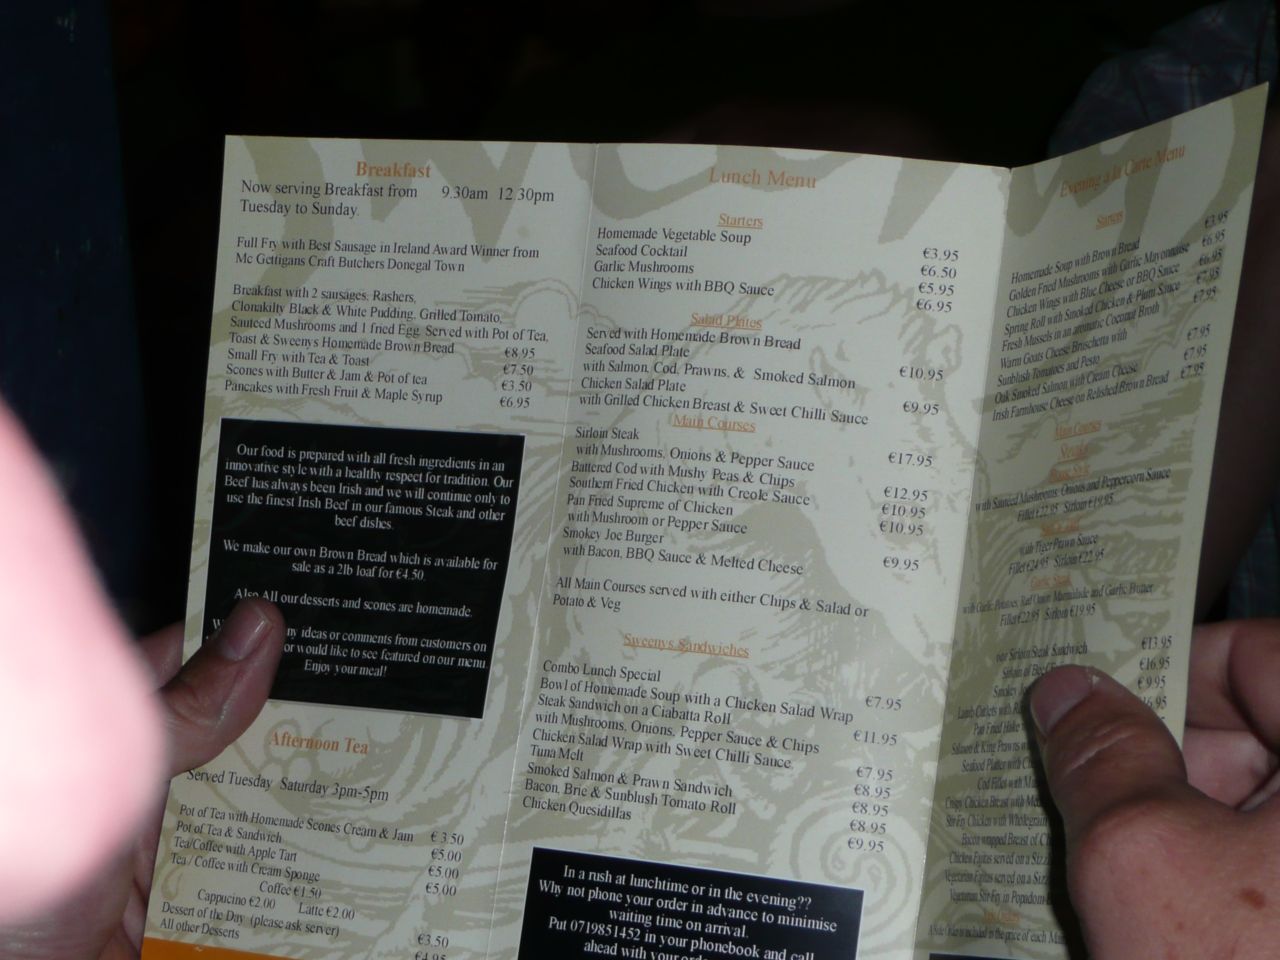 Breakfast
Now serving Breakfast from 9.30am 12.30pm
Tuesday to Sunday.
Full Fry with Best Sausage in Ireland Award Winner from
Mc Gettigans Craft Butchers Donegal Town
Breakfast with 2 sausages, Rashers,
Clonakilty Black & White Pudding, Grilled Tomato,
Sauteed Mushrooms and 1 fried Egg. Served with Pot of Tea,
Toast & Sweenys Homemade Brown Bread €8.95
Small Fry with Tea & Toast €7.50
Scones with Butter & Jam & Pot of tea €3.50
Pancakes with Fresh Fruit & Maple Syrup €6.95
Our food is prepared with all fresh ingredients in an
innovative style with a healthy respect for tradition. Our
Beef has always been Irish and we will continue only to
use the finest Irish Beef in our famous Steak and other
beef dishes.
We make our own Brown Bread which is available for
sale as a 2lb loaf for €4.50.
Also All our desserts and scones are homemade.
ny ideas or comments from customers on
or would like to see featured on our menu.
Enjoy your meal!
Afternoon Tea
Served Tuesday Saturday 3pm-5pm
Pot of Tea with Homemade Scones Cream & Jam € 3.50
Pot of Tea & Sandwich €5.00
Tea/Coffee with Apple Tart €5.00
Tea / Coffee with Cream Sponge €5,00
Coffee €1.50
Cappucino €2.00 Latte €2.00
Dessert of the Day (please ask server) €3.50
All other Desserts €4.95
Lunch Menu
Starters
Homemade Vegetable Soup €3.95
Seafood Cocktail €6.50
Garlic Mushrooms €5.95
Chicken Wings with BBQ Sauce €6.95
Salad Plates
Served with Homemade Brown Bread
Seafood Salad Plate
with Salmon, Cod, Prawns, & Smoked Salmon €10.95
Chicken Salad Plate
with Grilled Chicken Breast & Sweet Chilli Sauce €9.95
Main Courses
Sirloin Steak
with Mushrooms, Onions & Pepper Sauce €17.95
Battered Cod with Mushy Peas & Chips €12.95
Southern Fried Chicken with Creole Sauce €10.95
Pan Fried Supreme of Chicken
with Mushroom or Pepper Sauce €10.95
Smokey Joe Burger
with Bacon, BBQ Sauce & Melted Cheese €9.95
All Main Courses served with either Chips & Salad or
Potato & Veg
Sweenys Sandwiches
Combo Lunch Special
Bowl of Homemade Soup with a Chicken Salad Wrap €7.95
Steak Sandwich on a Ciabatta Roll
with Mushrooms, Onions, Pepper Sauce & Chips €11.95
Chicken Salad Wrap with Sweet Chilli Sauce. €7.95
Tuna Melt €8.95
Smoked Salmon & Prawn Sandwich €8.95
Bacon, Brie & Sunblush Tomato Roll €8.95
Chicken Quesidillas €9.95
In a rush at lunchtime or in the evening??
Why not phone your order in advance to minimise
waiting time on arrival.
Put 0719851452 in your phonebook and call
ahead with your order
Evening a la Carte Menu
Starters
Homemade Soup with Brown Bread €3.95
Golden Fried Mushrooms with Garlic Mayonnaise €6.95
Chicken Wings with Blue Cheese or BBQ Sauce €6.95
Spring Roll with Smoked Chicken & Plum Sauce €7.95
Fresh Mussels in an aromatic Coconut Broth €7.95
Warm Goats Cheese Bruschetta with
Sunblush Tomatoes and Pesto €7.95
Oak Smoked Salmon with Cream Cheese €7.95
Irish Farmhouse Cheese on Relished Brown Bread €7.95
Main Courses
Steaks
House Style
with Sauteed Mushrooms, Onions and Peppercorn Sauce
Fillet €22.95 Sirloin €19.95
with Tiger Prawn Sauce
Fillet €24.95 Sirloin €22.95
Garlic Steak
with Garlic Potatoes, Red Onion Marmalade and Garlic Butter
Fillet €22.95 Sirloin €19.95
Sirloin Steak Sandwich €13.95
Sirloin of Beef €16.95
Smokey €9.95
Lamb Cutlets with
Pan Fried Hake
Salmon & King Prawns
Seafood Platter with
Cod Fillet with
Crispy Chicken Breast with
Stir Fry Chicken with Wholegrain
Bacon wrapped Breast of
Chicken Fajitas served on a
Vegetarian Fajitas served on a
Vegetarian Stir Fry in Popadom